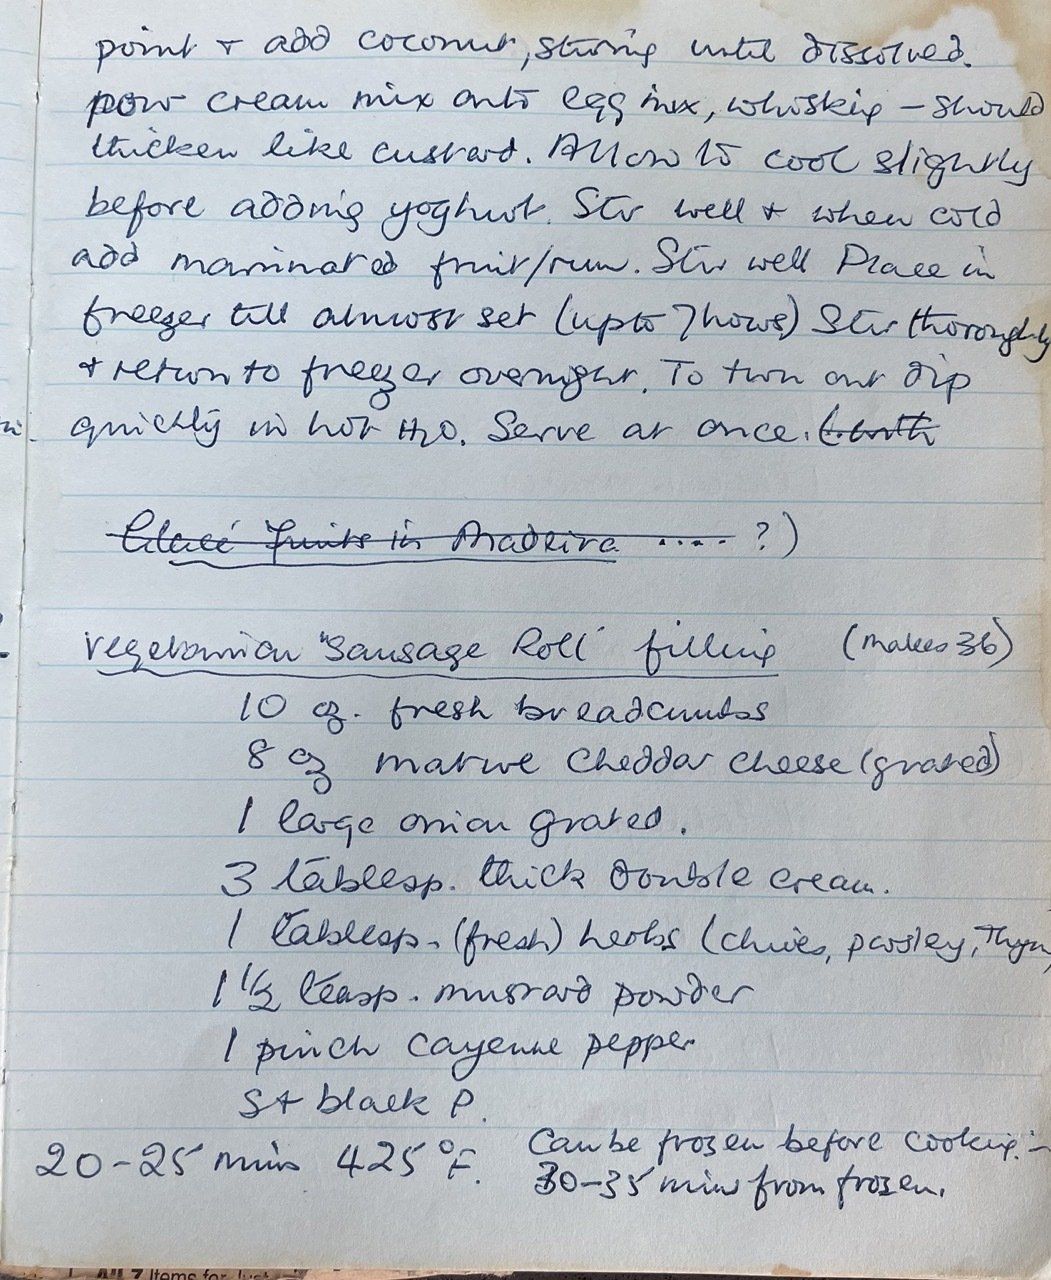 point + add coconut, stirring until dissolved.
pour cream mix onto egg mix, whisking – should
thicken like custard. Allow to cool slightly
before adding yoghurt. Stir well + when cold
add marinated fruit/rum. Stir well Place in
freezer till almost set (up to 7 hours) Stir thoroughly
+ return to freezer overnight. To turn out dip
quickly in hot H2O. Serve at once. (with
Glacé fruits in Madeira ..... ?)
Vegetarian "Sausage Roll" filling (makes 36)
10 oz. fresh breadcrumbs
8 oz mature Cheddar cheese (grated)
1 large onion grated.
3 tablesp. thick double cream.
1 tablesp. (fresh) herbs (chives, parsley, Thym
1 1/2 teasp. mustard powder
1 pinch cayenne pepper
S + black P.
20-25 mins 425 °F. Can be frozen before cooking:-
30-35 mins from frozen.
All 7 Items for Just